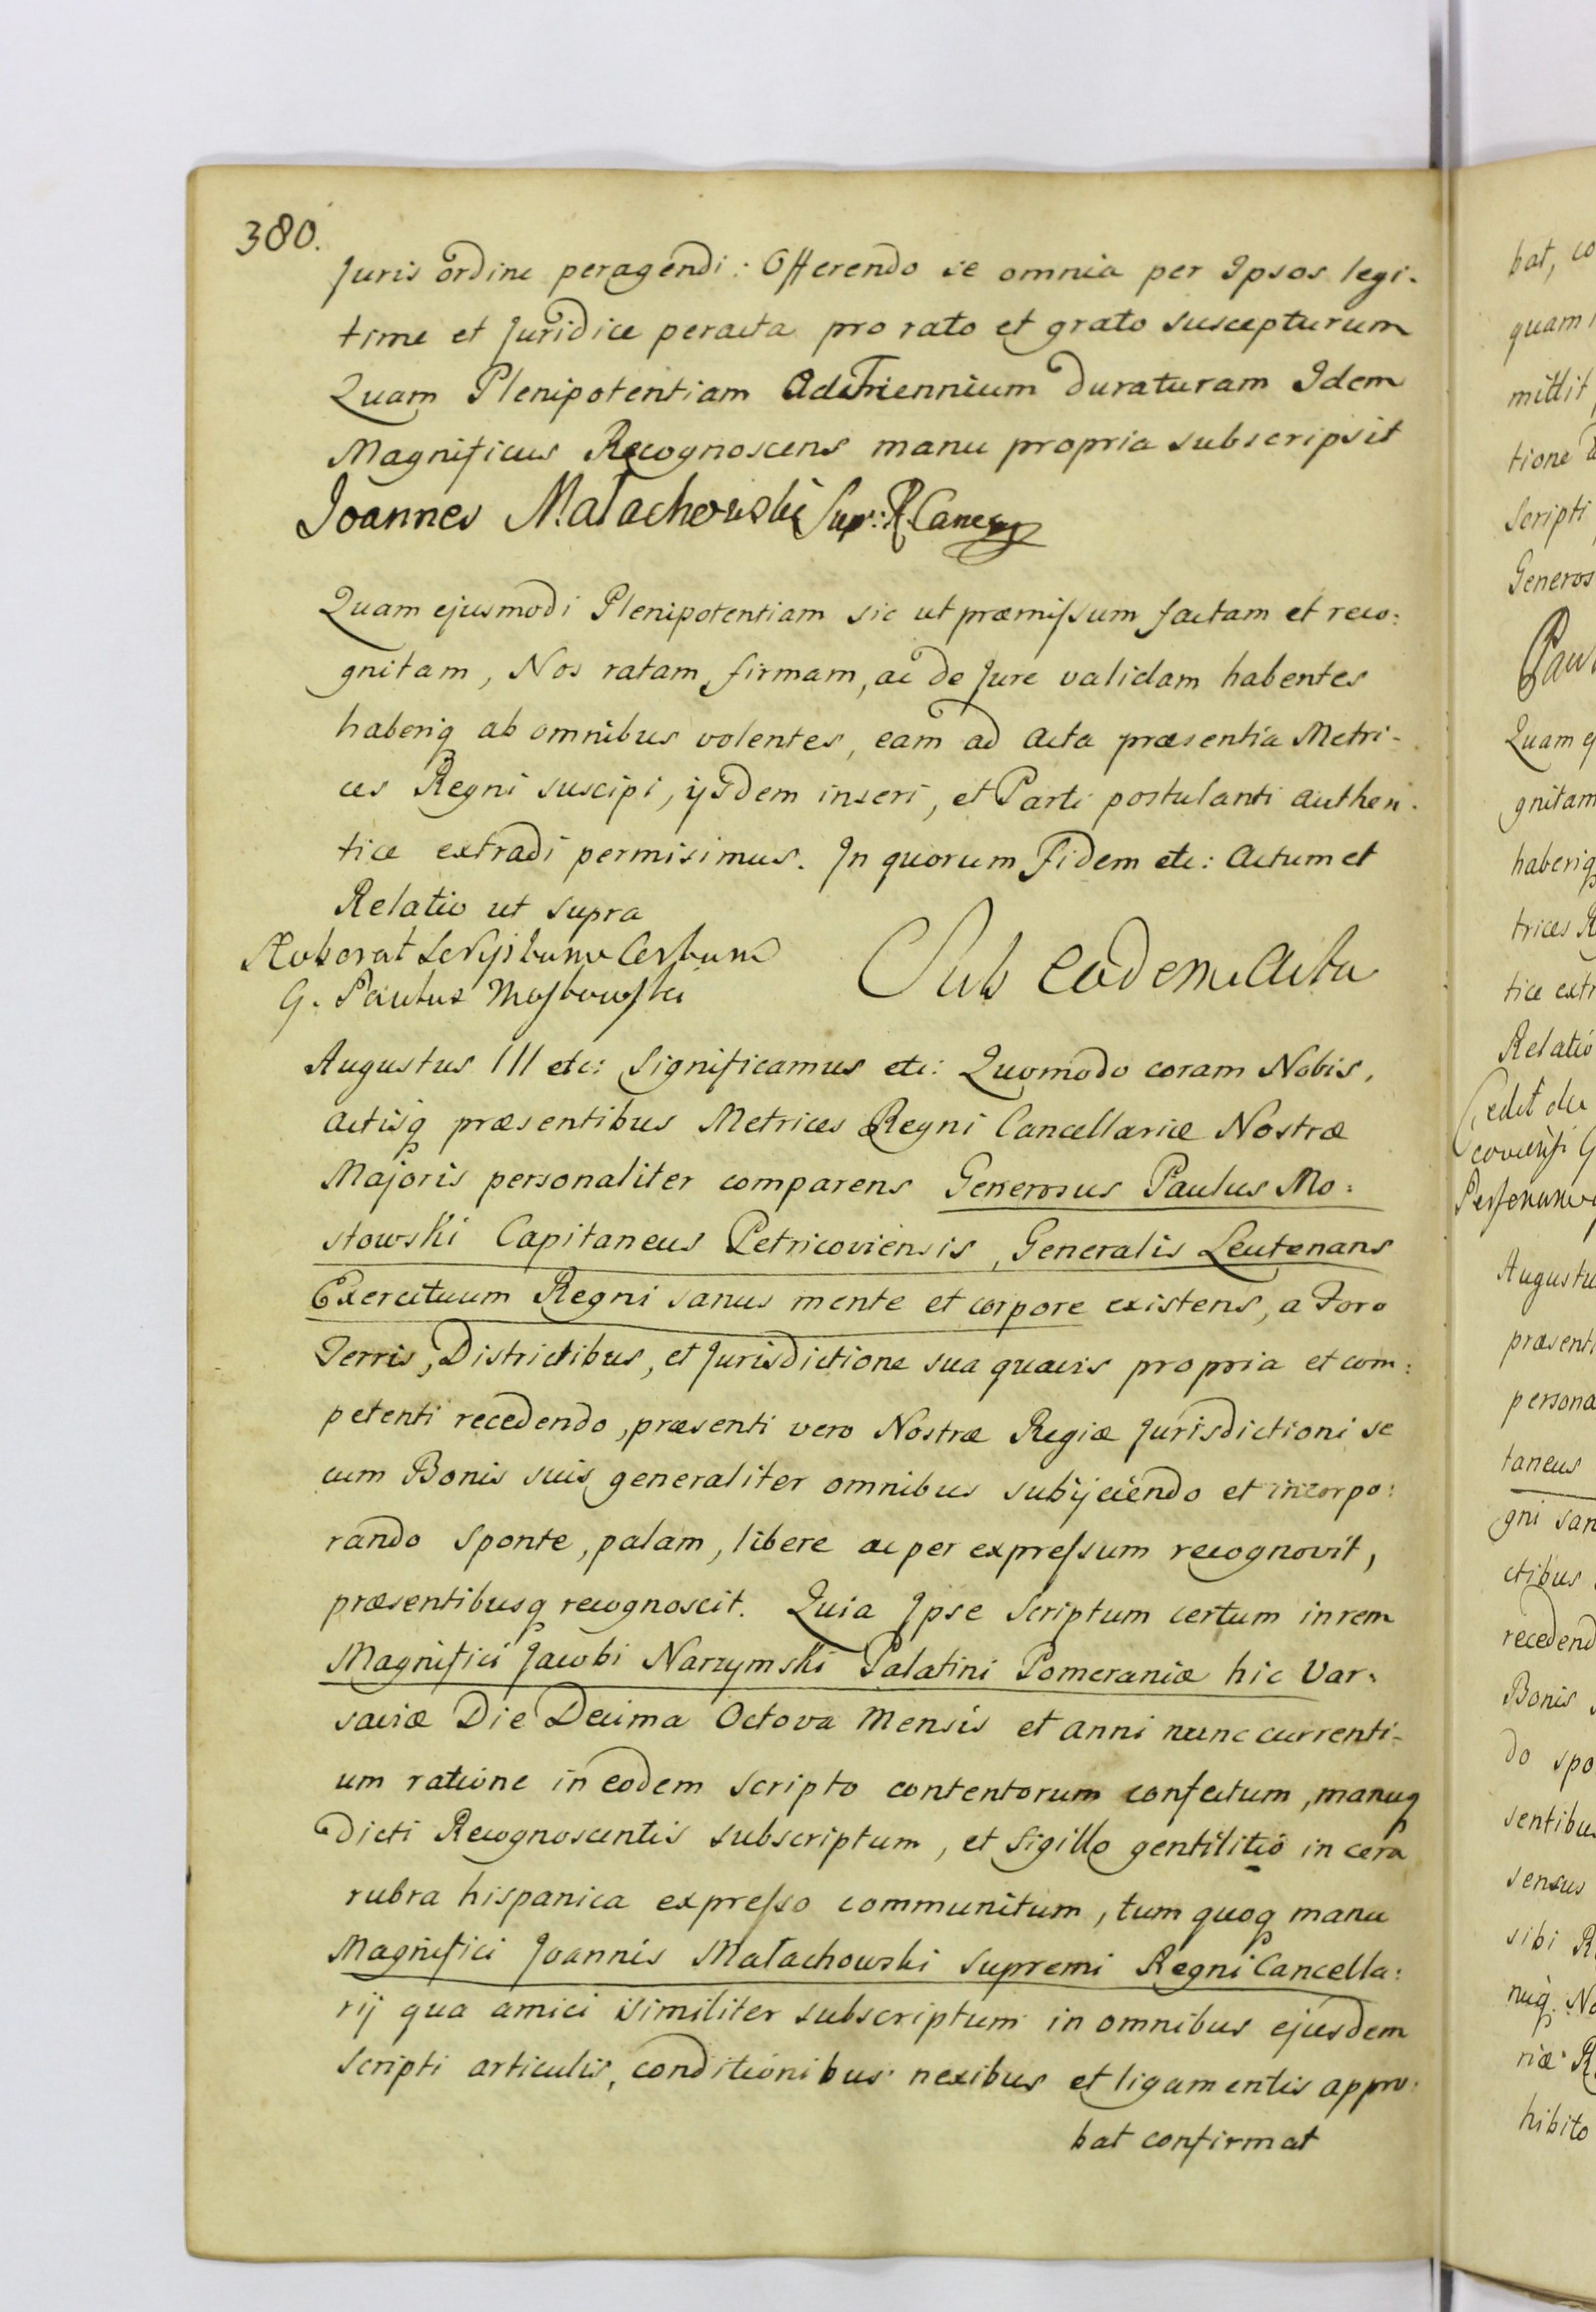 380.
Juris ordine peragendi: Offerendo se omnia per Ipsos legi-
time et Juridice peracta pro rato et grato suscepturum
Quam Plenipotentiam ad Triennium duraturam Idem
Magnificus Recognoscens manu propria subscripsit
Joannes Małachowski Sup: R. Canc
Quam ejusmodi Plenipotentiam sic ut præmissum factam et reco:
gnitam, Nos ratam, firmam, ac de Jure validam habentes
haberiq ab omnibus volentes, eam ad Acta præsentia Metri-
ces Regni suscipi, ijsdem inseri, et Parti postulanti authen-
tice extradi permisimus. In quorum Fidem etc: Actum et
Relatio ut supra
Roborat Scriptum Certum
G. Paulus Mostowski
Sub eadem Acta
Augustus III etc: Significamus etc: Quomodo coram Nobis,
Actisq præsentibus Metrices Regni Cancellariæ Nostræ
Majoris personaliter comparens Generosus Paulus Mo:
stowski Capitaneus Petricoviensis, Generalis Leutenans
Exercituum Regni sanus mente et corpore existens, a Foro
Terris, Districtibus, et Jurisdictione sua quavis propria et com:
petenti recedendo, præsenti vero Nostræ Regiæ Jurisdictioni se
cum Bonis suis generaliter omnibus subijciendo et incorpo:
rando sponte, palam, libere ac per expressum recognovit,
præsentibusq recognoscit. Quia Ipse Scriptum certum in rem
Magnifici Jacobi Narzymski Palatini Pomeraniæ hic Var-
saviæ Die Decima Octova Mensis et Anni nunc currenti-
um ratione in eodem scripto contentorum confectum, manuq
dicti Recognoscentis subscriptum, et Sigillo gentilitio in cera
rubra hispanica expresso communitum, tum quoq manu
Magnifici Joannis Małachowski Supremi Regni Cancella:
rij qua amici similiter subscriptum in omnibus ejusdem
scripti articulis, conditionibus nexibus et ligamentis appro:
bat confirmat
bat, co
quam
mittit
tione
Scripti
Generos
Pau
Quam ej
gnitam
haberiq
trices R
tice extr
Relatio
Cedit de
Personam
Augustu
præsenti
persona
taneus
gni san
ctibus
recedend
Bonis
do spo
sentibu
sensus
sibi R
nuq. No
riæ R
hibito